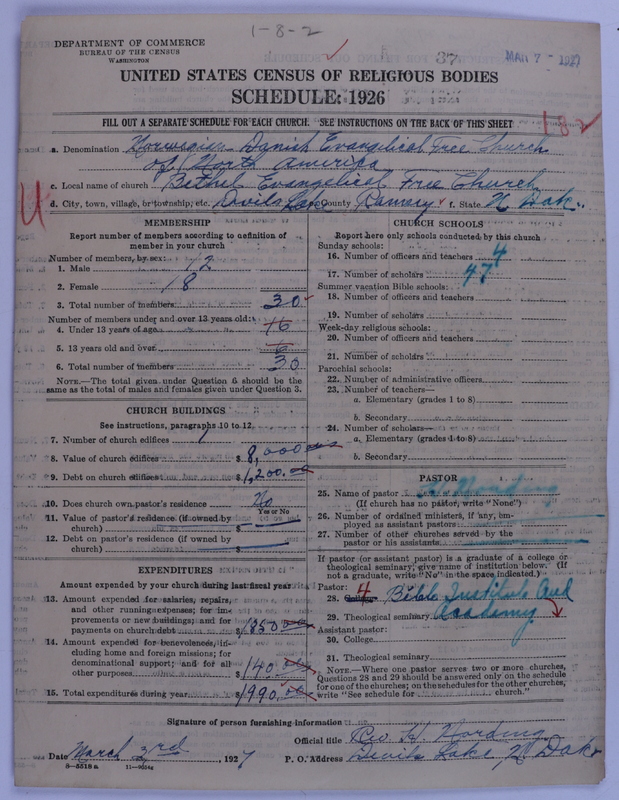 1-8-2
37
MAR 7 - 1927
DEPARTMENT OF COMMERCE
BUREAU OF THE CENSUS
WASHINGTON
UNITED STATES CENSUS OF RELIGIOUS BODIES
SCHEDULE: 1926
FILL OUT A SEPARATE SCHEDULE FOR EACH CHURCH. SEE INSTRUCTIONS ON THE BACK OF THIS SHEET
182
a. Denomination Norwegian-Danish Evangelical Free Church
of North America
c. Local name of church Bethel Evangelical Free Church
d. City, town, village, or township, etc. Devils Lake County Ramsey f. State N Dak.
MEMBERSHIP
Report number of members according to definition of
member in your church
Number of members, by sex:
1. Male 12
2. Female 18
3. Total number of members 30
Number of members under and over 13 years old:
4. Under 13 years of age
5. 13 years old and over
6. Total number of members 30
NOTE.—The total given under Question 6 should be the
same as the total of males and females given under Question 3.
CHURCH BUILDINGS
See instructions, paragraphs 10 to 12
7. Number of church edifices 1
8. Value of church edifices $8,000.00
9. Debt on church edifices $1,200.00
10. Does church own pastor's residence No
Yes or No
11. Value of pastor's residence (if owned by
church) $
12. Debt on pastor's residence (if owned by
church) $
EXPENDITURES
Amount expended by your church during last fiscal year
13. Amount expended for salaries, repairs,
and other running expenses; for im-
provements or new buildings; and for
payments on church debt $1850.00
14. Amount expended for benevolences, in-
cluding home and foreign missions; for
denominational support; and for all
other purposes $140.00
15. Total expenditures during year $1990.00
CHURCH SCHOOLS
Report here only schools conducted by this church
Sunday schools:
16. Number of officers and teachers 4
17. Number of scholars 47
Summer vacation Bible schools:
18. Number of officers and teachers
19. Number of scholars
Week-day religious schools:
20. Number of officers and teachers
21. Number of scholars
Parochial schools:
22. Number of administrative officers
23. Number of teachers—
a. Elementary (grades 1 to 8)
b. Secondary
24. Number of scholars—
a. Elementary (grades 1 to 8)
b. Secondary
PASTOR
25. Name of pastor H. Nording
(If church has no pastor, write "None")
26. Number of ordained ministers, if any, em-
ployed as assistant pastors
27. Number of other churches served by the
pastor or his assistants
If pastor (or assistant pastor) is a graduate of a college or
theological seminary, give name of institution below. (If
not a graduate, write "No" in the space indicated.)
Pastor: 4
28. College Bible Institute and
29. Theological seminary Academy
Assistant pastor:
30. College
31. Theological seminary
NOTE.—Where one pastor serves two or more churches,
Questions 28 and 29 should be answered only on the schedule
for one of the churches; on the schedules for the other churches,
write "See schedule for church."
Signature of person furnishing information
Official title Rev. H. Nording
Date March 3rd, 1927 P. O. Address Devils Lake N Dak
8-5518 a 11-9054a